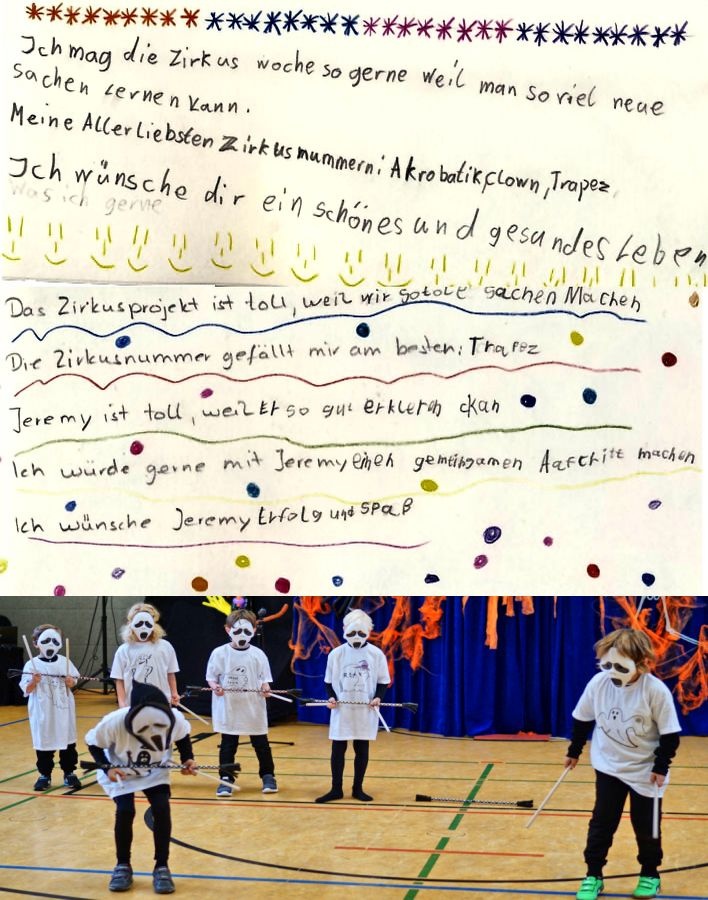 Ich mag die Zirkus woche so gerne weil man so viel neue
sachen lernen kann.
Meine Allerliebsten Zirkusnummern: Akrobatik, Clown, Trapez
Ich wünsche dir ein schönes und gesundes Leben
Was ich gerne
Das Zirkusprojekt ist toll, weil wir so tolle sachen Machen
Die Zirkusnummer gefällt mir am besten: Trapez
Jeremy ist toll, weil Er so gut erklern ckan
Ich würde gerne mit Jeremy einen gemeinsamen Auftritt machen
Ich wünsche Jeremy Erfolg und Spaß